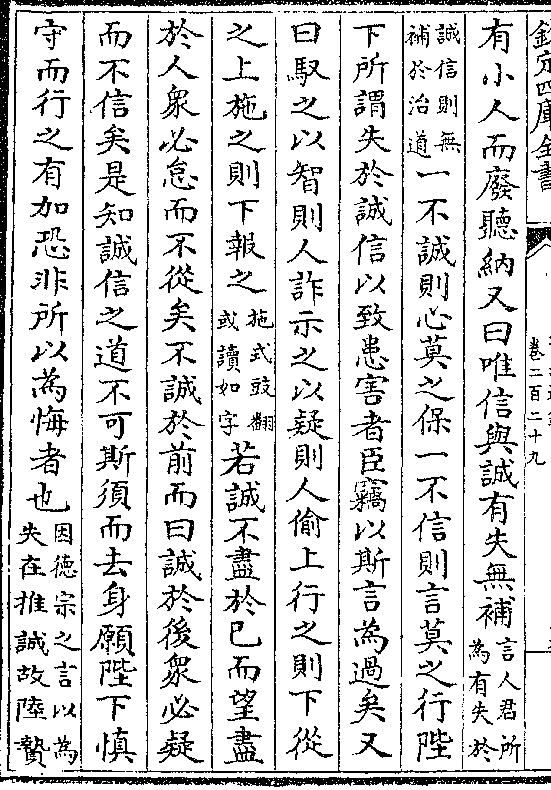 欽定四庫全書
卷二百二十九
有小人而廢聽納又曰唯信與誠有失無補言人君所為有失於
誠信則無補於治道一不誠則心莫之保一不信則言莫之行陛
下所謂失於誠信以致患害者臣竊以斯言為過矣又
曰馭之以智則人詐示之以疑則人偷上行之則下從
之上施之則下報之施式豉翻或讀如字若誠不盡於已而望盡
於人衆必怠而不從矣不誠於前而曰誠於後衆必疑
而不信矣是知誠信之道不可斯須而去身願陛下慎
守而行之有加恐非所以為悔者也因德宗之言以為失在推誠故陸贄